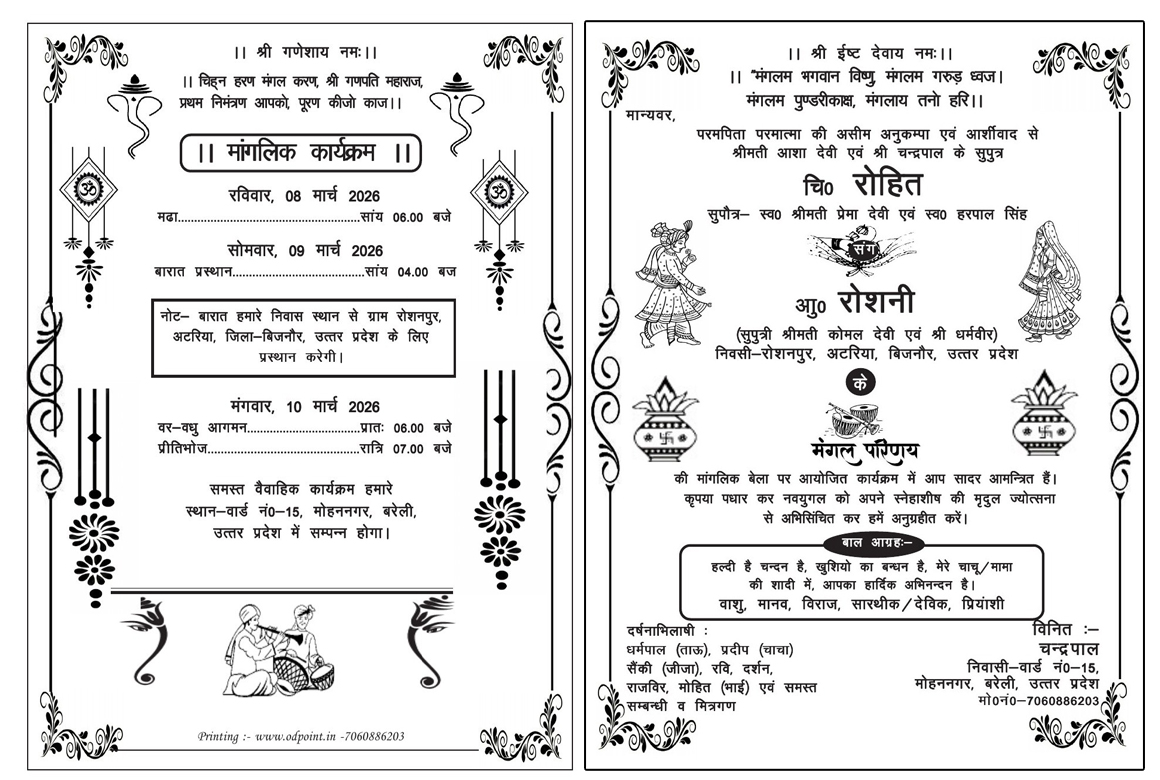 ।। श्री गणेशाय नमः।।
।। चिह्न हरण मंगल करण, श्री गणपति महाराज,
प्रथम निमंत्रण आपको, पूरण कीजो काज।।
।। मांगलिक कार्यक्रम ।।
रविवार, 08 मार्च 2026
मढा.......................................................सांय 06.00 बजे
सोमवार, 09 मार्च 2026
बारात प्रस्थान........................................सांय 04.00 बज
नोट– बारात हमारे निवास स्थान से ग्राम रोशनपुर,
अटरिया, जिला–बिजनौर, उत्तर प्रदेश के लिए
प्रस्थान करेगी।
मंगवार, 10 मार्च 2026
वर–वधु आगमन..................................प्रातः 06.00 बजे
प्रीतिभोज..............................................रात्रि 07.00 बजे
समस्त वैवाहिक कार्यक्रम हमारे
स्थान–वार्ड नं0–15, मोहननगर, बरेली,
उत्तर प्रदेश में सम्पन्न होगा।
Printing :- www.odpoint.in -7060886203
।। श्री ईष्ट देवाय नमः।।
।। "मंगलम भगवान विष्णु, मंगलम गरुड़ ध्वज।
मंगलम पुण्डरीकाक्ष, मंगलाय तनो हरि।।
मान्यवर,
परमपिता परमात्मा की असीम अनुकम्पा एवं आर्शीवाद से
श्रीमती आशा देवी एवं श्री चन्द्रपाल के सुपुत्र
चि0 रोहित
सुपौत्र– स्व0 श्रीमती प्रेमा देवी एवं स्व0 हरपाल सिंह
संग
आु0 रोशनी
(सुपुत्री श्रीमती कोमल देवी एवं श्री धर्मवीर)
निवसी–रोशनपुर, अटरिया, बिजनौर, उत्तर प्रदेश
के
मंगल परिणय
की मांगलिक बेला पर आयोजित कार्यक्रम में आप सादर आमन्त्रित हैं।
कृपया पधार कर नवयुगल को अपने स्नेहाशीष की मृदुल ज्योत्सना
से अभिसिंचित कर हमें अनुग्रहीत करें।
बाल आग्रहः–
हल्दी है चन्दन है, खुशियो का बन्धन है, मेरे चाचू/मामा
की शादी में, आपका हार्दिक अभिनन्दन है।
वाशु, मानव, विराज, सारथीक/देविक, प्रियांशी
दर्षनाभिलाषी :
धर्मपाल (ताऊ), प्रदीप (चाचा)
सैंकी (जीजा), रवि, दर्शन,
राजविर, मोहित (भाई) एवं समस्त
सम्बन्धी व मित्रगण
विनित :–
चन्द्रपाल
निवासी–वार्ड नं0–15,
मोहननगर, बरेली, उत्तर प्रदेश
मो0नं0–7060886203